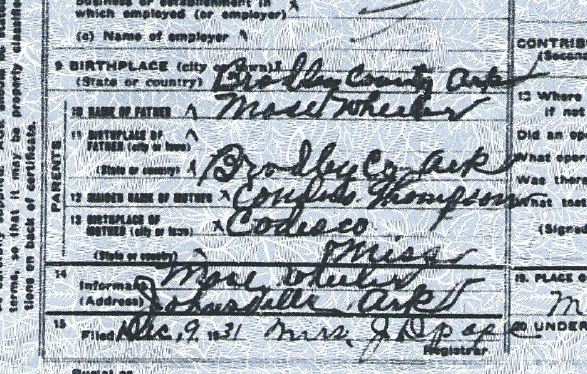 which employed (or employer)
(c) Name of employer
9 BIRTHPLACE (city or town) Bradley County Ark
(State or country)
10 NAME OF FATHER Mose Wheeler
11 BIRTHPLACE OF
FATHER (city or town)
(State or country) Bradley Co, Ark
12 MAIDEN NAME OF MOTHER Thompson
13 BIRTHPLACE OF
MOTHER (city or town) Codesco
(State or country) Miss
14
Informant Mose Wheeler
(Address) Johnsville Ark
15
Filed Dec, 9, 1931 Mrs. J D
Registrar
PARENTS
terms, so that it may be properly
on back of certificate.
CONTRIB
12 Where
if not
Did an
What
Was there
What
(Signed
19. PLACE O
M
20 UNDER